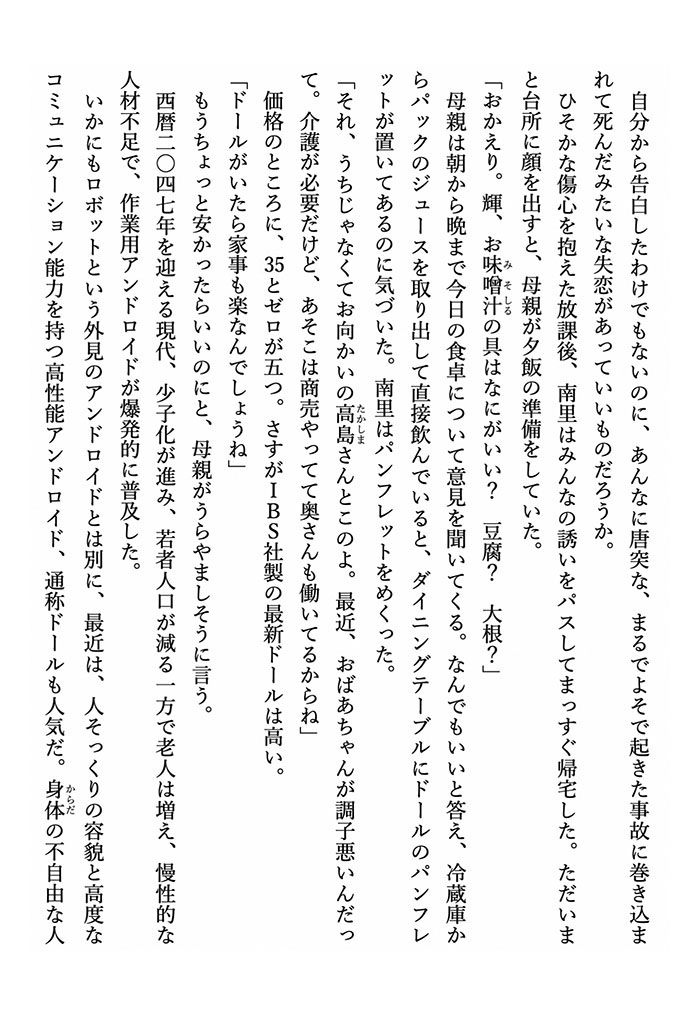 自分から告白したわけでもないのに、あんなに唐突な、まるでよそで起きた事故に巻き込ま
れて死んだみたいな失恋があっていいものだろうか。
　ひそかな傷心を抱えた放課後、南里はみんなの誘いをパスしてまっすぐ帰宅した。ただいま
と台所に顔を出すと、母親が夕飯の準備をしていた。
「おかえり。輝、お味噌汁の具はなにがいい？　豆腐？　大根？」
　母親は朝から晩まで今日の食卓について意見を聞いてくる。なんでもいいと答え、冷蔵庫か
らパックのジュースを取り出して直接飲んでいると、ダイニングテーブルにドールのパンフレ
ットが置いてあるのに気づいた。南里はパンフレットをめくった。
「それ、うちじゃなくてお向かいの高島さんとこのよ。最近、おばあちゃんが調子悪いんだっ
て。介護が必要だけど、あそこは商売やってて奥さんも働いてるからね」
　価格のところに、35とゼロが五つ。さすがＩＢＳ社製の最新ドールは高い。
「ドールがいたら家事も楽なんでしょうね」
　もうちょっと安かったらいいのにと、母親がうらやましそうに言う。
　西暦二〇四七年を迎える現代、少子化が進み、若者人口が減る一方で老人は増え、慢性的な
人材不足で、作業用アンドロイドが爆発的に普及した。
　いかにもロボットという外見のアンドロイドとは別に、最近は、人そっくりの容貌と高度な
コミュニケーション能力を持つ高性能アンドロイド、通称ドールも人気だ。身体の不自由な人